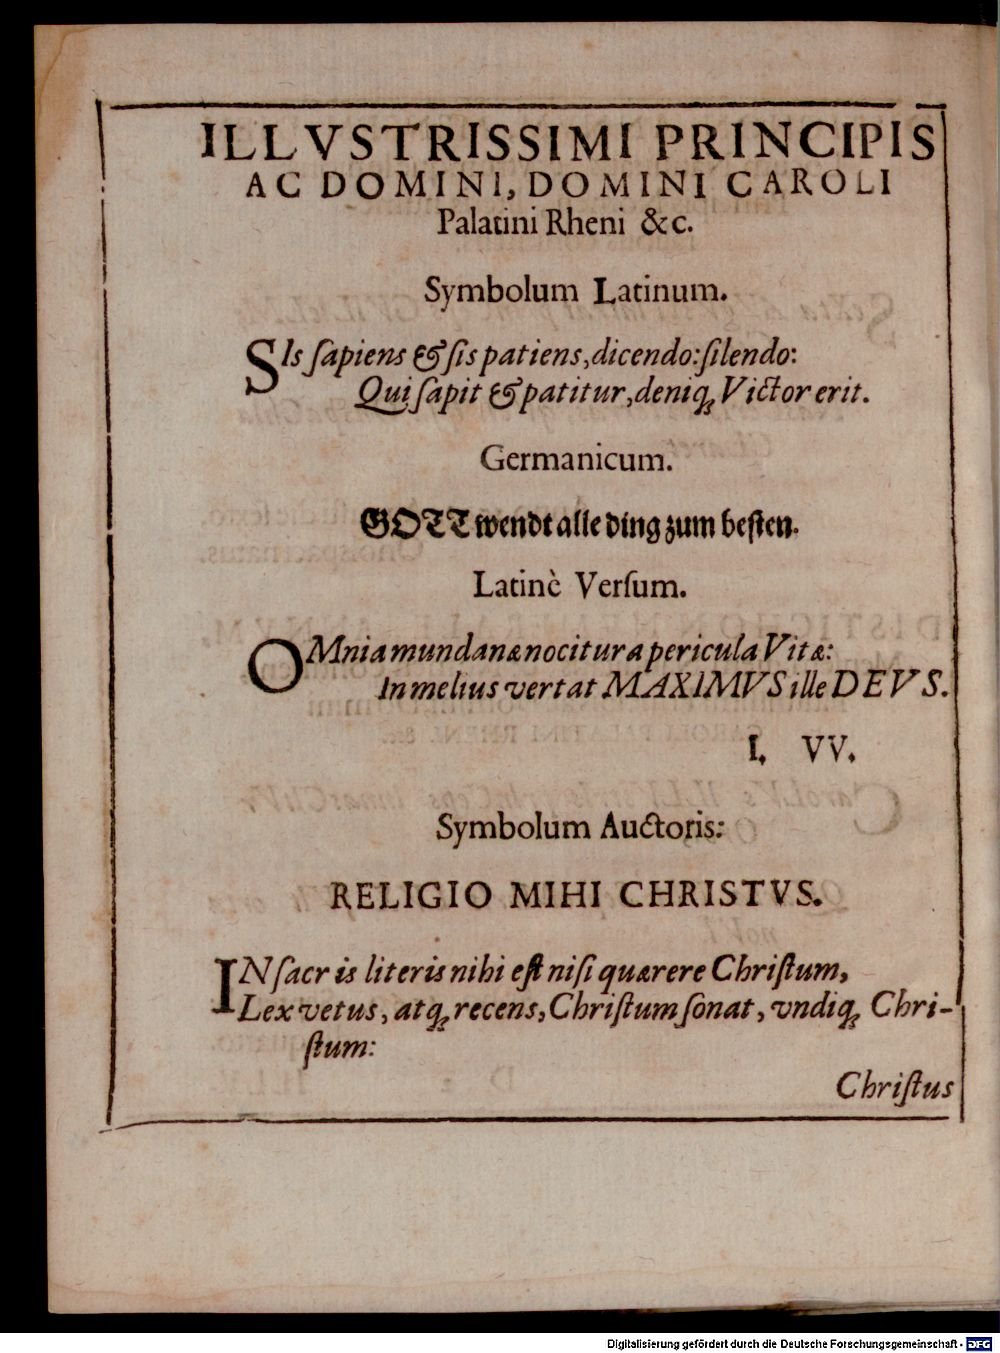 ILLVSTRISSIMI PRINCIPIS
AC DOMINI, DOMINI CAROLI
Palatini Rheni &c.
Symbolum Latinum.
SIs ſapiens & ſis patiens, dicendo: ſilendo:
Qui ſapit & patitur, deniq; Victor erit.
Germanicum.
GOTT wendt alle ding zum beſten.
Latinè Verſum.
OMnia mundanæ nocitura pericula Vitæ:
In melius vertat MAXIMVS ille DEVS.
I. VV.
Symbolum Auctoris:
RELIGIO MIHI CHRISTVS.
IN ſacris literis nihi eſt niſi quærere Chriſtum,
Lex vetus, atq; recens, Chriſtum ſonat, vndiq; Chri-
ſtum:
Chriſtus
Digitalisierung gefördert durch die Deutsche Forschungsgemeinschaft - DFG